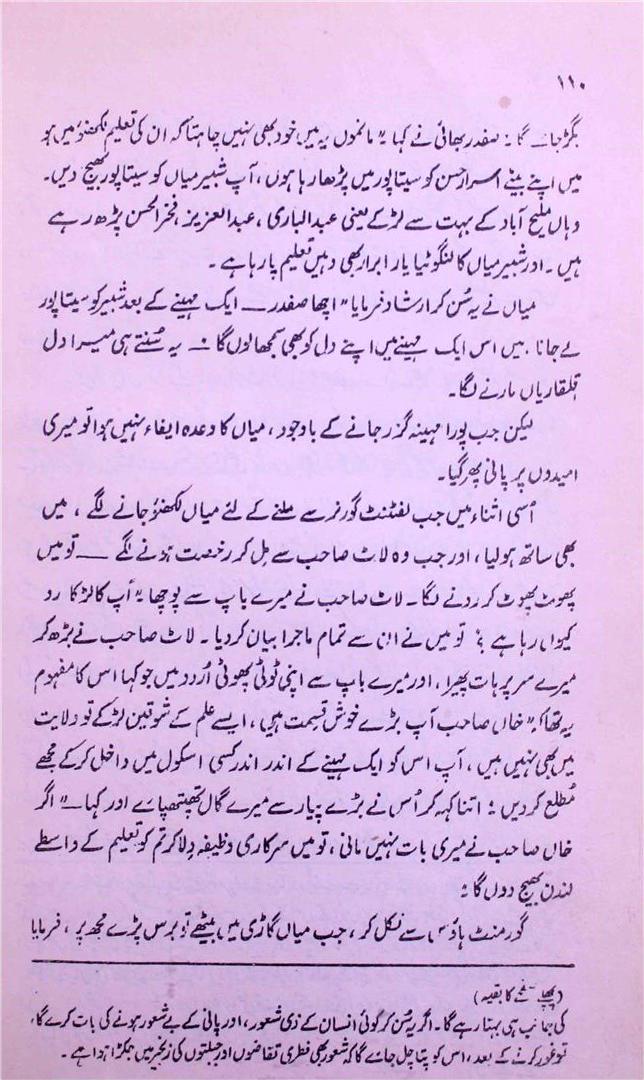 ۱۱۰
بگڑ جائے گا؛ صفدر بھائی نے کہا "مانموں یہ میں خود بھی نہیں چاہتا کہ ان کی تعلیم لکھنؤ میں ہو
میں اپنے بیٹے اسرار حسن کو سیتاپور میں پڑھا رہا ہوں، آپ شبیر میاں کو سیتاپور بھیج دیں۔
وہاں ملیح آباد کے بہت سے لڑکے یعنی عبدالباری، عبدالعزیز، فخر الحسن پڑھ رہے
ہیں۔ اور شبیر میاں کا لنگوٹیا یار ابرار بھی وہیں تعلیم پا رہا ہے۔
میاں نے یہ سُن کر ارشاد فرمایا "اچھا صفدر — ایک مہینے کے بعد شبیر کو سیتاپور
لے جانا، میں اس ایک مہینے میں اپنے دل کو بھی سمجھا لوں گا؛ یہ سُنتے ہی میرا دل
قلقاریاں مارنے لگا۔
لیکن جب پورا مہینہ گزر جانے کے باوجود، میاں کا وعدہ ایفاء نہیں ہوا تو میری
امیدوں پر پانی پھر گیا۔
اُسی اثناء میں جب لفٹننٹ گورنر سے ملنے کے لئے میاں لکھنؤ جانے لگے، میں
بھی ساتھ ہو لیا، اور جب وہ لاٹ صاحب سے مِل کر رخصت ہونے لگے — تو میں
پھوٹ پھوٹ کر رونے لگا۔ لاٹ صاحب نے میرے باپ سے پوچھا "آپ کا لڑکا رو
کیوں رہا ہے؟" تو میں نے ان سے تمام ماجرا بیان کر دیا۔ لاٹ صاحب نے بڑھ کر
میرے سر پر ہات پھیرا، اور میرے باپ سے اپنی ٹوٹی پھوٹی اُردو میں جو کہا اس کا مفہوم
یہ تھا کہ "خاں صاحب آپ بڑے خوش قسمت ہیں، ایسے علم کے شوقین لڑکے تو ولایت
میں بھی نہیں ہیں، آپ اس کو ایک مہینے کے اندر اندر کسی اسکول میں داخل کر کے مجھے
مُطلع کر دیں؛ اتنا کہہ کر اُس نے بڑے پیار سے میرے گال تھپتھپائے اور کہا — "اگر
خاں صاحب نے میری بات نہیں مانی، تو میں سرکاری وظیفہ دِلا کر تم کو تعلیم کے واسطے
لندن بھیج دوں گا؛
گورمنٹ ہاؤس سے نکل کر، جب میاں گاڑی میں بیٹھے تو برس پڑے مجھ پر، فرمایا
(پچھلے صفحے کا بقیہ)
کی جانب ہی بہتا رہے گا۔ اگر یہ سُن کر کوئی انسان کے ذی شعور، اور پانی کے بے شعور ہونے کی بات کرے گا،
تو غور کرنے کے بعد، اس کو پتا چل جائے گا کہ شعور بھی فطری تقاضوں اور جبلتوں کی زنجیر میں جکڑا ہوا ہے۔